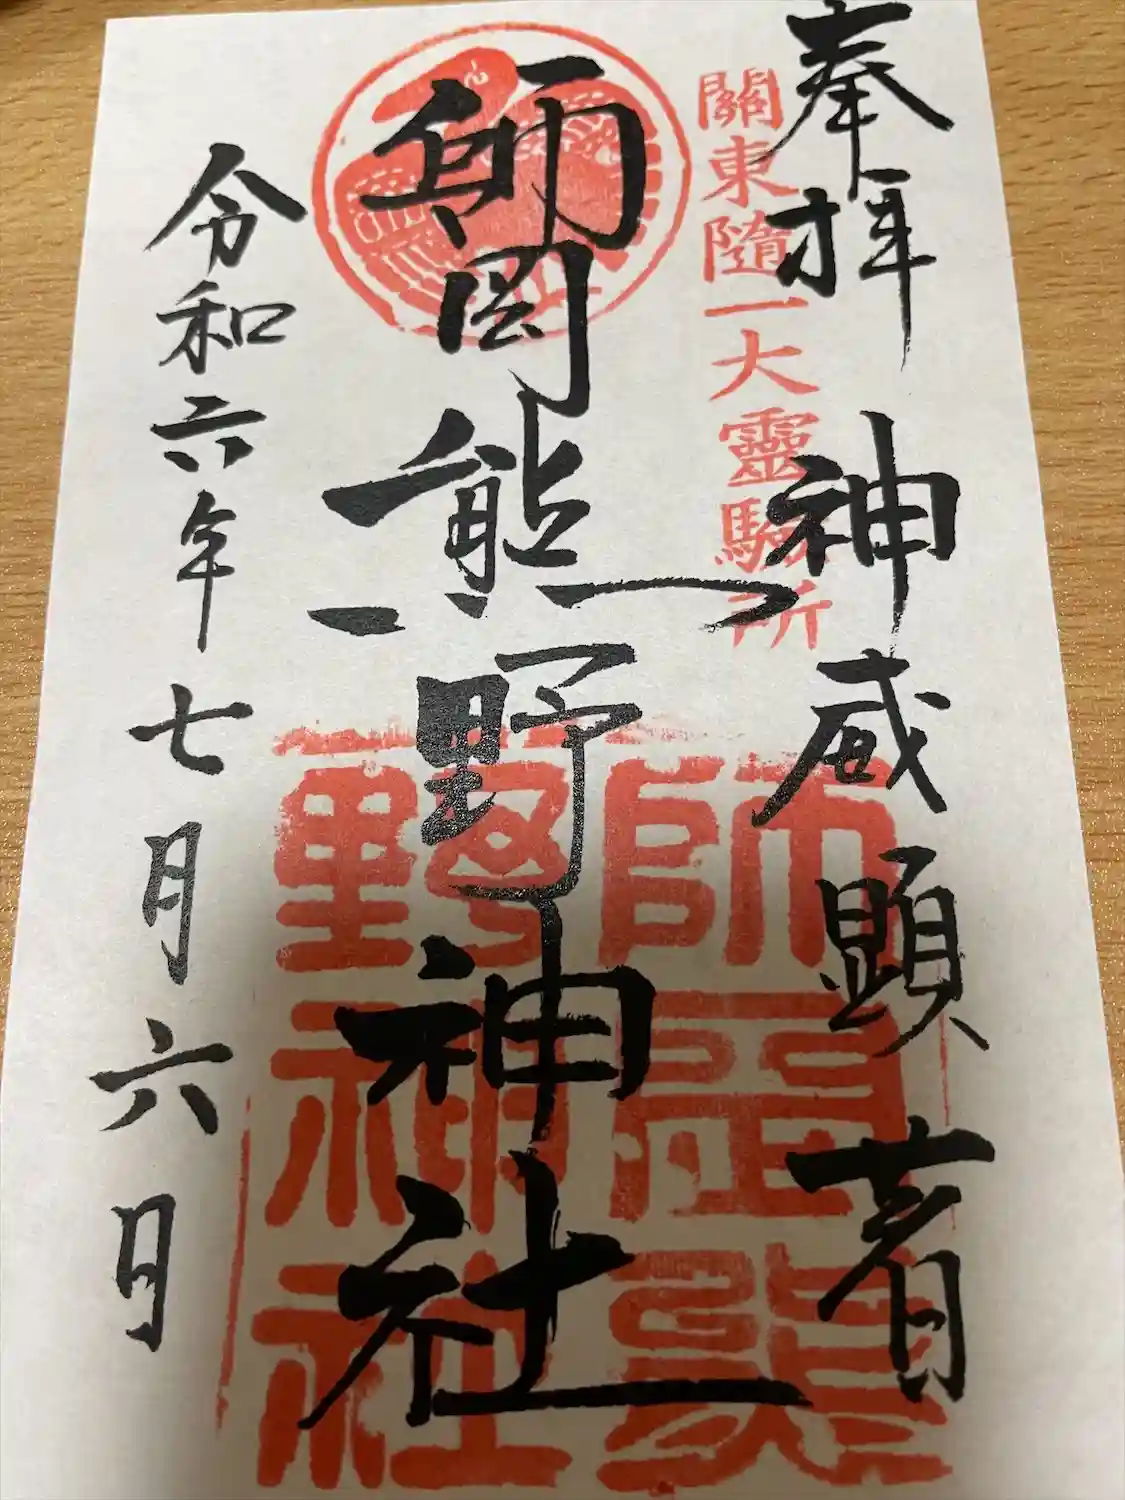 奉拝
神威顕著
關東隨一大靈驗所
師岡熊野神社
師岡熊野神社
令和六年七月六日